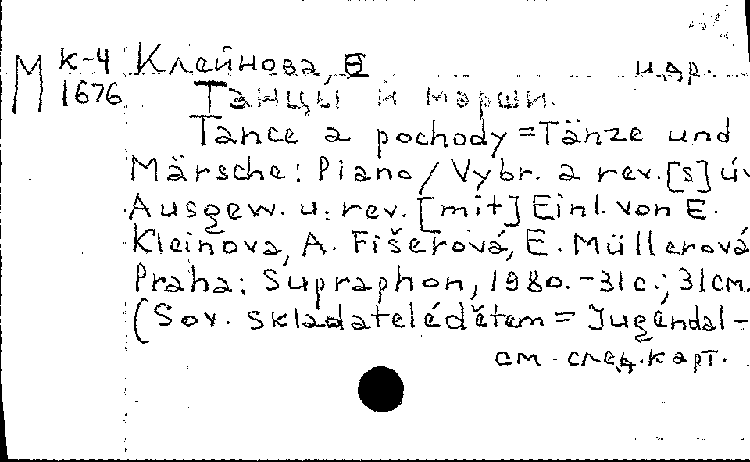 М К-4 Клейнова, Э и др.
1676 Танцы и марши.
Tance a pochody = Tänze und
Märsche: Piano / Vybr. a rev. [s] úv
Ausgew. u. rev. [mit] Einl. von E.
Kleinova, A. Fišerová, E. Müllerová
Praha: Supraphon, 1980. - 31 с.; 31 см.
(Sov. skladatelé dětem = Jugendal-
см. след. карт.